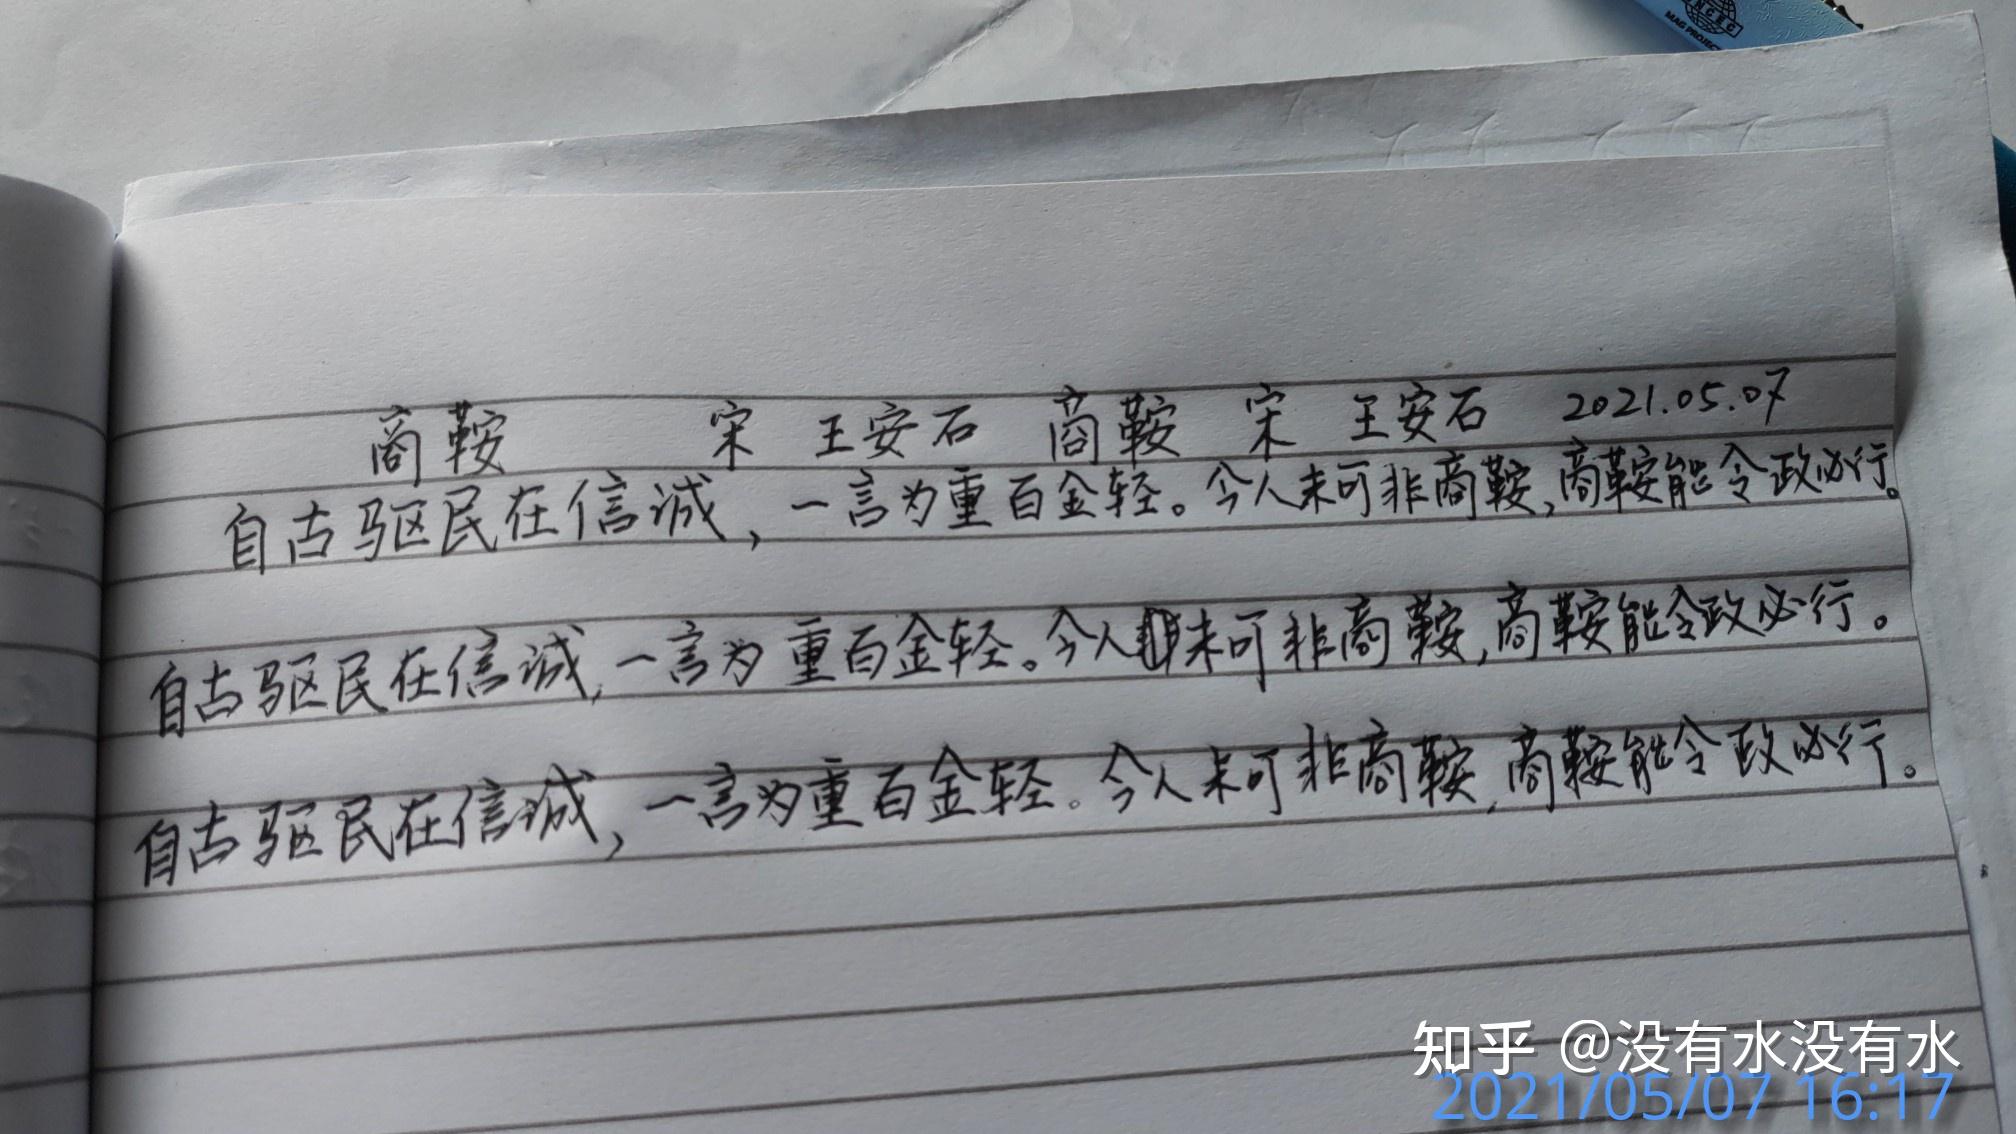 NCEC
MAG PROJECT
商鞍 宋 王安石 商鞍 宋 王安石 2021.05.07
自古驱民在信诚，一言为重百金轻。今人未可非商鞍，商鞍能令政必行。
自古驱民在信诚，一言为重百金轻。今人未可非商鞍，商鞍能令政必行。
自古驱民在信诚，一言为重百金轻。今人未可非商鞍，商鞍能令政必行。
知乎 @没有水没有水
2021/05/07 16:17